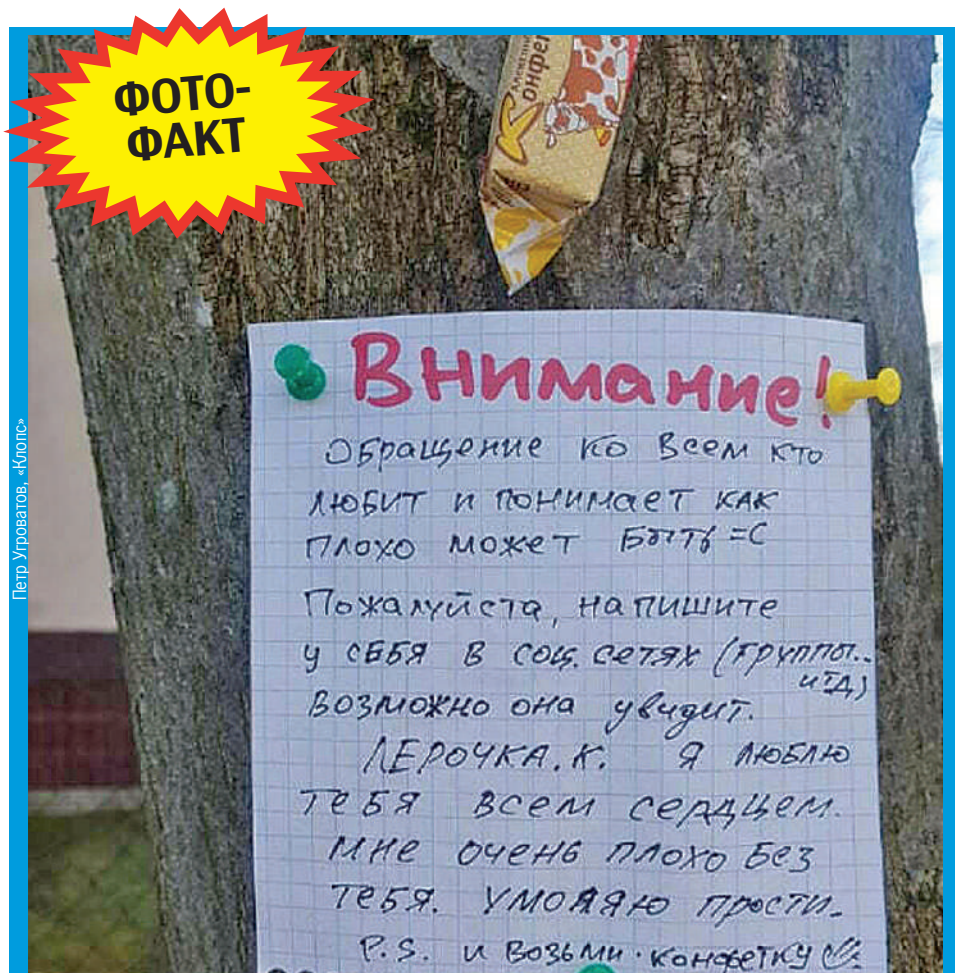 ФОТО-
ФАКТ
онфе
Петр Угроватов, «Клопс»
Внимание!
Обращение ко всем кто
любит и понимает как
плохо может быть =С
Пожалуйста, напишите
у себя в соц. сетях (группы..
итд)
возможно она увидит.
Лерочка.К. Я люблю
тебя всем сердцем.
мне очень плохо без
тебя. умоляю прости.
P.S. и возьми конфетку